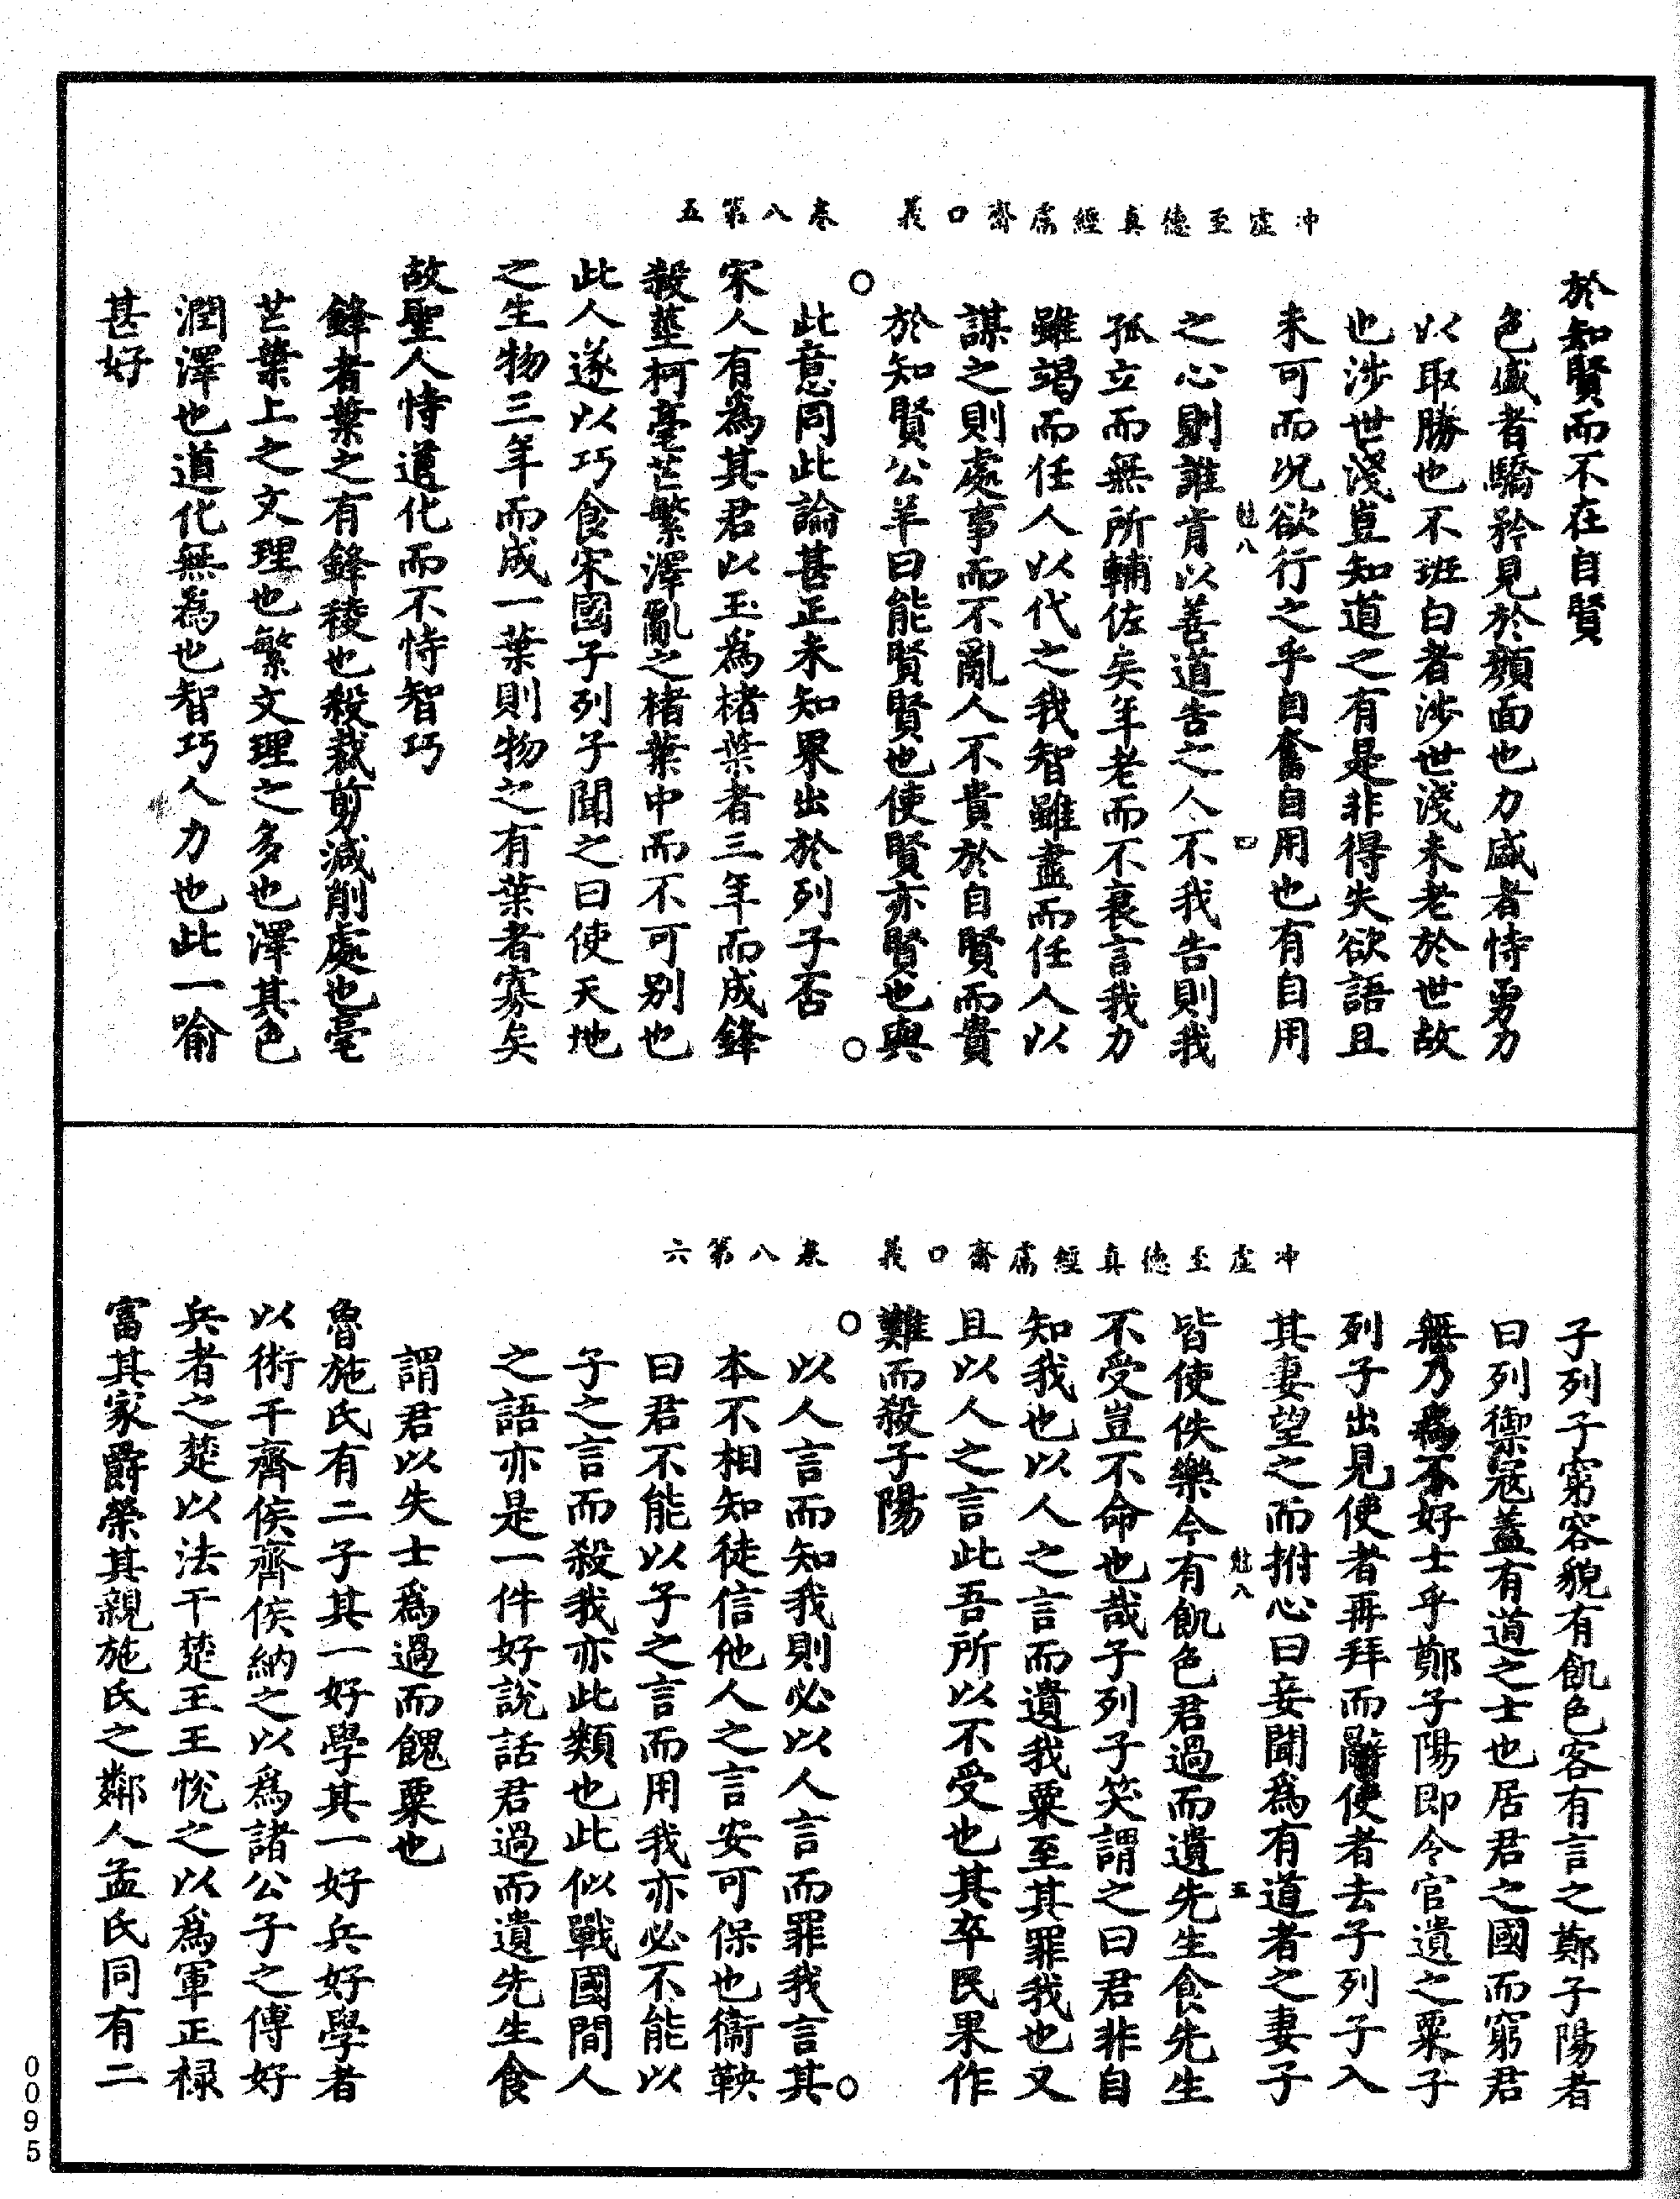 冲虛至德真經鬳齋口義　卷八第五
於知賢而不在自賢
色盛者驕矜見於顏面也力盛者恃勇力
以取勝也不班白者涉世淺未老於世故
也涉世淺豈知道之有是非得失欲語且
未可而况欲行之乎自奮自用也有自用
尅八　四
之心則誰肯以善道告之人不我告則我
孤立而無所輔佐矣年老而不衰言我力
雖竭而任人以代之我智雖盡而任人以
謀之則處事而不亂人不貴於自賢而貴
於知賢公羊曰能賢賢也使賢亦賢也與
此意同此論甚正未知果出於列子否
宋人有為其君以玉為楮葉者三年而成鋒
殺莖柯毫芒繁澤亂之楮葉中而不可别也
此人遂以巧食宋國子列子聞之曰使天地
之生物三年而成一葉則物之有葉者寡矣
故聖人恃道化而不恃智巧
鋒者葉之有鋒稜也殺裁剪減削處也毫
芒葉上之文理也繁文理之多也澤其色
潤澤也道化無為也智巧人力也此一喻
甚好
冲虛至德真經鬳齋口義　卷八第六
子列子窮容貌有飢色客有言之鄭子陽者
曰列禦寇蓋有道之士也居君之國而窮君
無乃為不好士乎鄭子陽即令官遺之粟子
列子出見使者再拜而辭使者去子列子入
其妻望之而拊心曰妾聞為有道者之妻子
尅八　五
皆使佚樂今有飢色君過而遺先生食先生
不受豈不命也哉子列子笑謂之曰君非自
知我也以人之言而遺我粟至其罪我也又
且以人之言此吾所以不受也其卒民果作
難而殺子陽
以人言而知我則必以人言而罪我言其
本不相知徒信他人之言安可保也衞鞅
曰君不能以子之言而用我亦必不能以
子之言而殺我亦此類也此似戰國間人
之語亦是一件好說話君過而遺先生食
謂君以失士爲過而餽粟也
魯施氏有二子其一好學其一好兵好學者
以術干齊侯齊侯納之以爲諸公子之傅好
兵者之楚以法干楚王王悅之以爲軍正禄
富其家爵榮其親施氏之鄰人孟氏同有二
0095